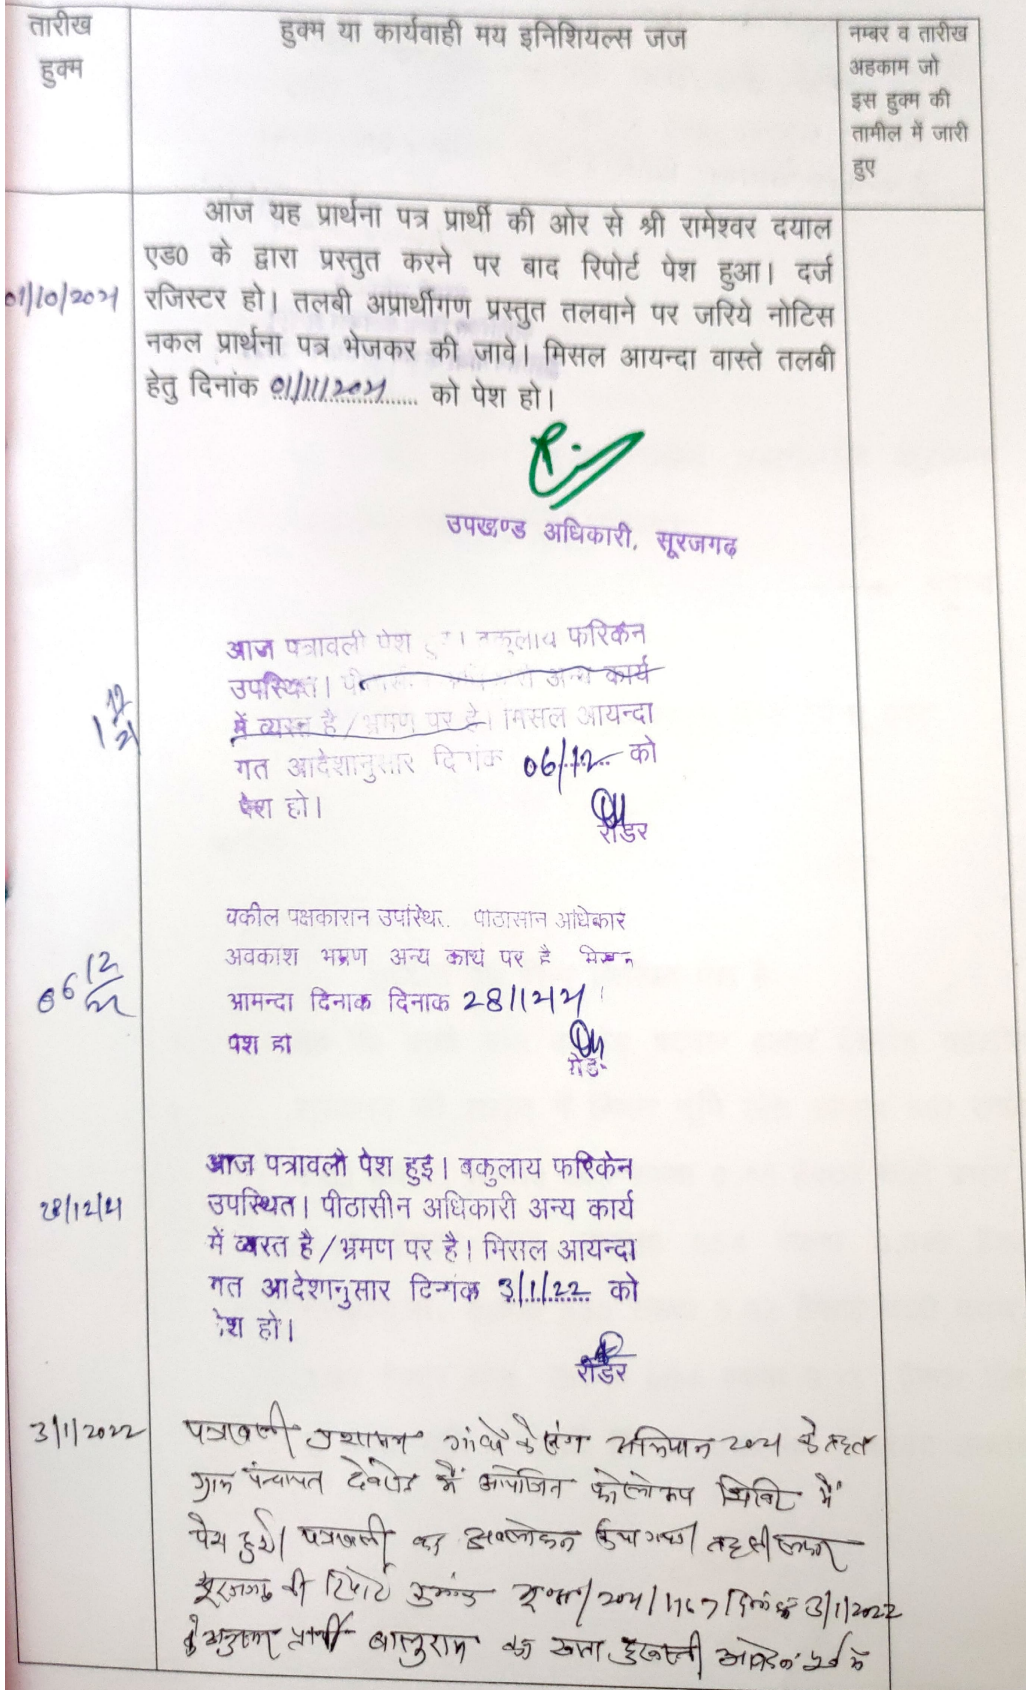 तारीख
हुक्म
हुक्म या कार्यवाही मय इनिशियल्स जज
नम्बर व तारीख
अहकाम जो
इस हुक्म की
तामील में जारी
हुए
आज यह प्रार्थना पत्र प्रार्थी की ओर से श्री रामेश्वर दयाल
एड0 के द्वारा प्रस्तुत करने पर बाद रिपोर्ट पेश हुआ। दर्ज
01/10/2021
रजिस्टर हो। तलबी अप्रार्थीगण प्रस्तुत तलवाने पर जरिये नोटिस
नकल प्रार्थना पत्र भेजकर की जावे। मिसल आयन्दा वास्ते तलबी
हेतु दिनांक 01/11/2021 को पेश हो।
उपखण्ड अधिकारी, सूरजगढ
आज पत्रावली पेश हुई। वकुलाय फरिकेन
उपस्थित। अन्य कार्य
में व्यस्त है/भ्रमण पर है। मिसल आयन्दा
गत आदेशानुसार दिनांक 06/12 को
पेश हो।
रीडर
वकील पक्षकारान उपस्थित. पीठासीन अधिकार
अवकाश भ्रमण अन्य कार्य पर है मिसल
06 12/21
आमन्दा दिनाक दिनाक 28/12/21
पेश हो
आज पत्रावली पेश हुई। बकुलाय फरिकेन
28/12/21
उपस्थित। पीठासीन अधिकारी अन्य कार्य
में व्यस्त है/भ्रमण पर है। मिसल आयन्दा
गत आदेशानुसार दिनांक 3/1/22 को
पेश हो।
रीडर
3/1/2022
पत्रावली प्रशासन गांवों के संग अभियान 2021 के तहत
ग्राम पंचायत में आयोजित फोलोअप शिविर में
पेश हुई। पत्रावली का अवलोकन किया गया। तहसीलदार
सूरजगढ की रिपोर्ट क्रमांक /2021/1167 दिनांक 3/1/2022
के अनुसार प्रार्थी बालुराम का खाता दुरूस्ती आवेदन पूर्व में